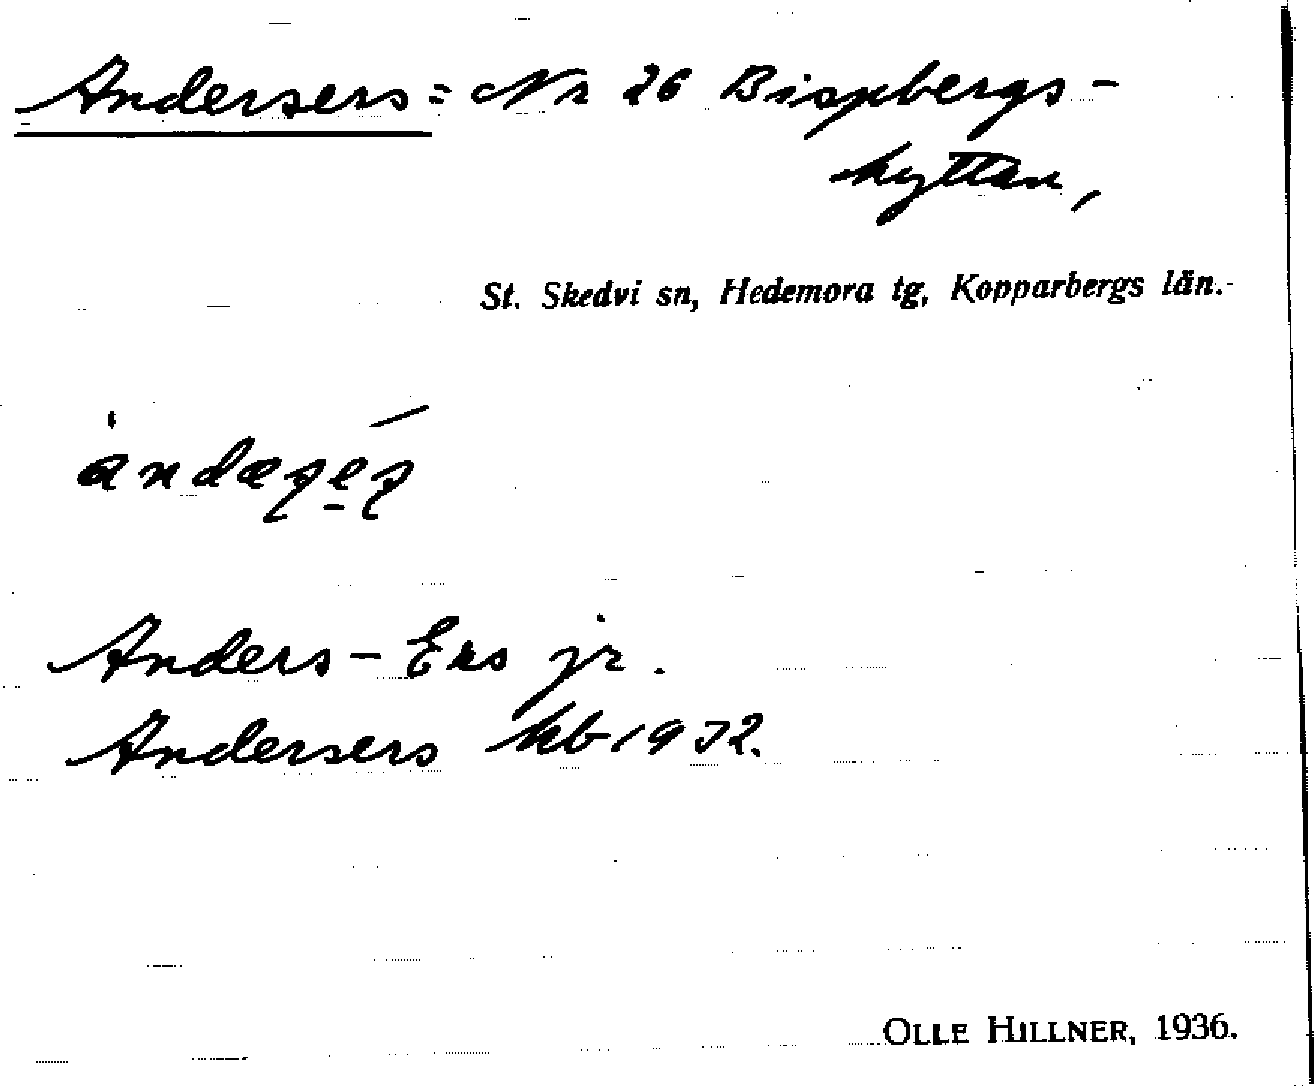 Andersers = Nr 26 Bispbergs-
hyttan,
St. Skedvi sn, Hedemora tg, Kopparbergs län.
Anders-Ers jr.
Andersers kb 1932.
OLLE HILLNER, 1936.